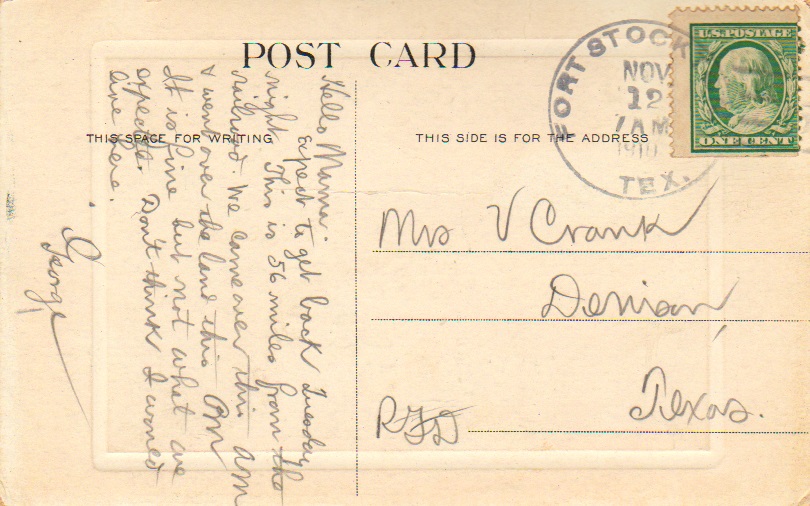 POST CARD
THIS SPACE FOR WRITING
THIS SIDE IS FOR THE ADDRESS
Hello Mama.
expect to get back Tuesday
night. This is 56 miles from the
railroad. We came over this am
& went over the land this Pm
It is fine but not what we
expected. Don't think I
live here.
George
FORT STOCK
NOV
12
7 AM
1910
TEX.
U.S. POSTAGE
ONE CENT
Mrs V Crank
Denison
Texas.
RFD